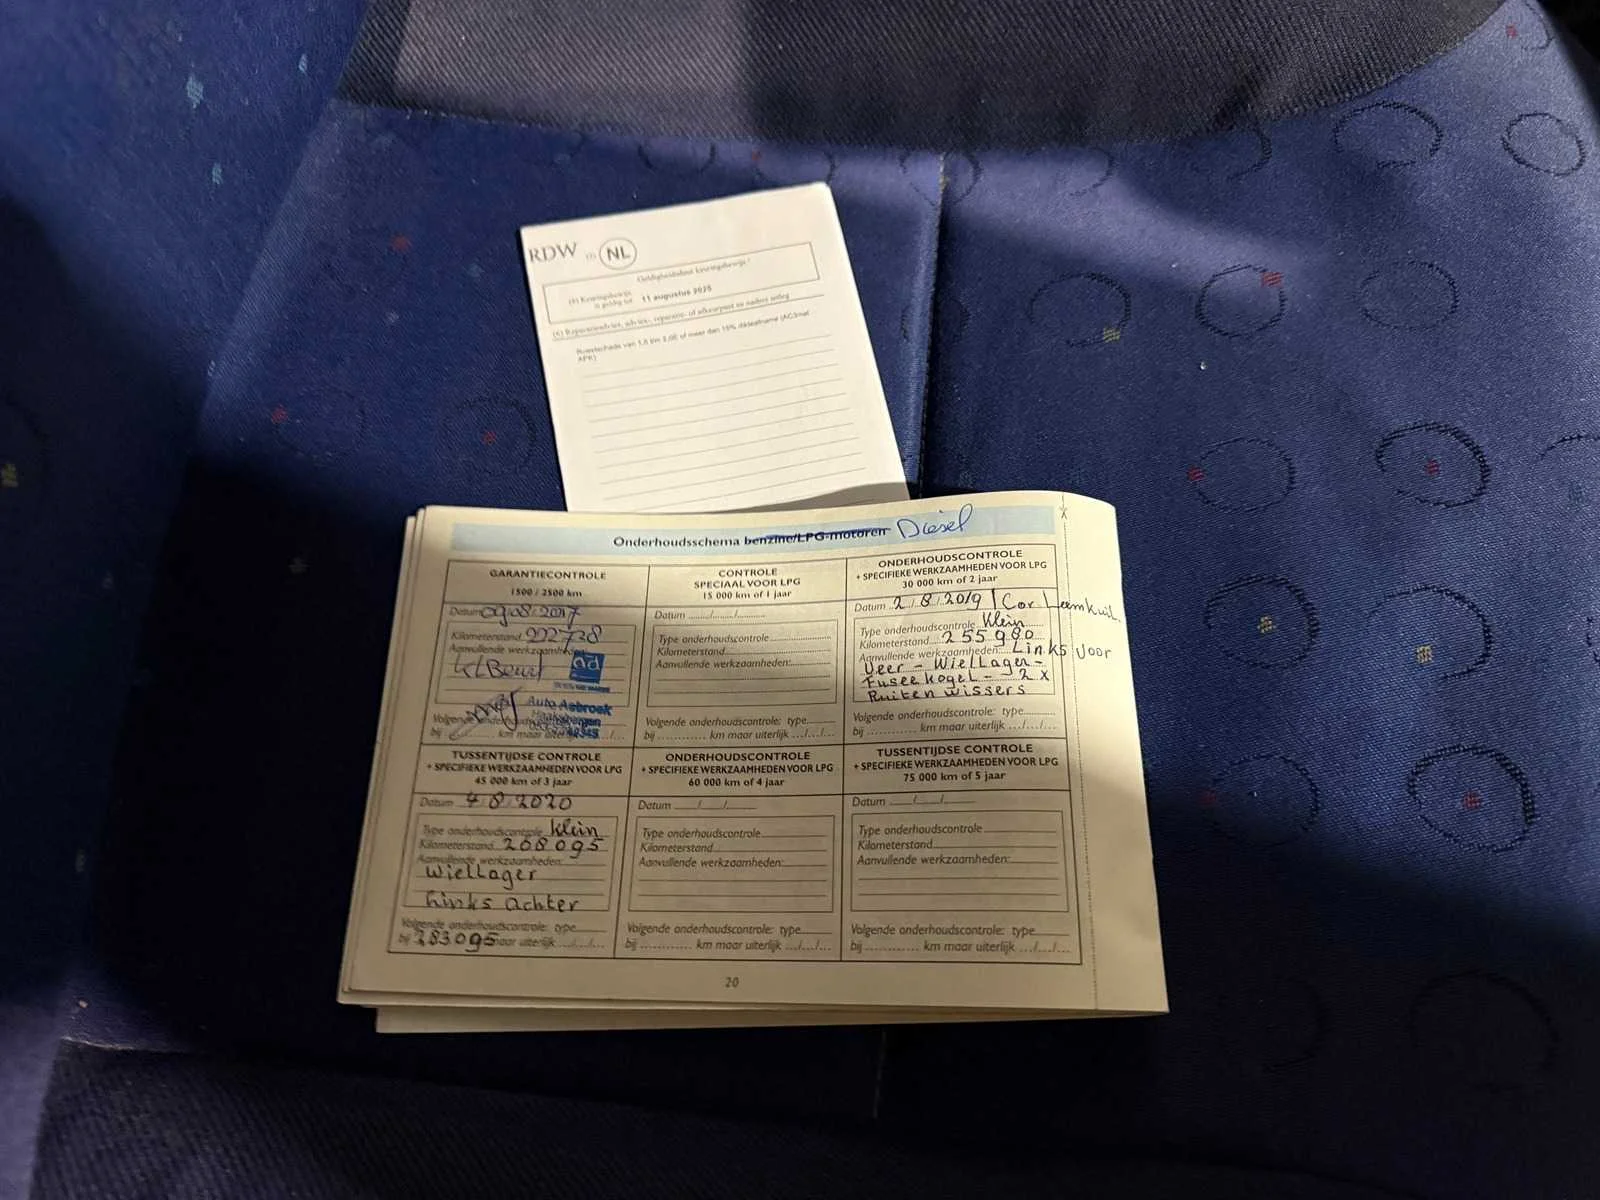 RDW (1) NL
Geldigheidsduur keuringsbewijs
(5) Keuringsbewijs
is geldig tot 11 augustus 2025
(6) Reparatieadvies, advies-, reparatie- of afkeurpunt en nadere uitleg
van 1,5 t/m 2,0E of meer dan 15% dikteafname (AC3
APK)
Onderhoudsschema benzine/LPG-motoren Diesel
GARANTIECONTROLE
1500 / 2500 km
Datum 09/08/2017
Kilometerstand 222728
Aanvullende werkzaamheden:
kl Beurt
ad
Auto Asbroek
Volgende onderhoudscontrole:
bij ............ km maar uiterlijk .../.../...
CONTROLE
SPECIAAL VOOR LPG
15 000 km of 1 jaar
Datum ....../....../..........
Type onderhoudscontrole
Kilometerstand
Aanvullende werkzaamheden:
Volgende onderhoudscontrole: type
bij ............ km maar uiterlijk .../.../...
ONDERHOUDSCONTROLE
+ SPECIFIEKE WERKZAAMHEDEN VOOR LPG
30 000 km of 2 jaar
Datum 2/8/2019 / Cor Leemkuil
Type onderhoudscontrole klein
Kilometerstand 255980
Aanvullende werkzaamheden: Links Voor
Veer - Wiellager -
Fuseekogel - 2x
Ruitenwissers
Volgende onderhoudscontrole: type
bij ............ km maar uiterlijk .../.../...
TUSSENTIJDSE CONTROLE
+ SPECIFIEKE WERKZAAMHEDEN VOOR LPG
45 000 km of 3 jaar
Datum 4/8/2020
Type onderhoudscontrole klein
Kilometerstand 268095
Aanvullende werkzaamheden:
Wiellager
Links Achter
Volgende onderhoudscontrole: type
bij 283095 maar uiterlijk .../.../...
ONDERHOUDSCONTROLE
+ SPECIFIEKE WERKZAAMHEDEN VOOR LPG
60 000 km of 4 jaar
Datum ___/___/___
Type onderhoudscontrole
Kilometerstand
Aanvullende werkzaamheden:
Volgende onderhoudscontrole: type
bij ............ km maar uiterlijk .../.../...
TUSSENTIJDSE CONTROLE
+ SPECIFIEKE WERKZAAMHEDEN VOOR LPG
75 000 km of 5 jaar
Datum ___/___/___
Type onderhoudscontrole
Kilometerstand
Aanvullende werkzaamheden:
Volgende onderhoudscontrole: type
bij ............ km maar uiterlijk .../.../...
20